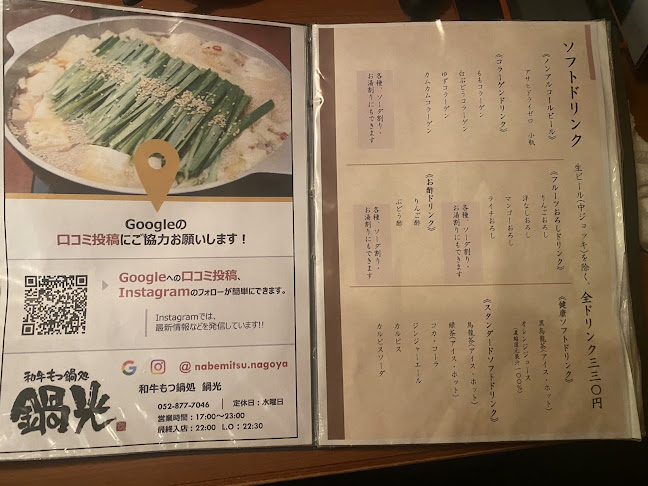 Googleの
口コミ投稿にご協力お願いします！
Googleへの口コミ投稿、
Instagramのフォローが簡単にできます。
Instagramでは、
最新情報などを発信しています!!
@nabemitsu.nagoya
和牛もつ鍋処
鍋光
和牛もつ鍋処 鍋光
052-877-7046
定休日：水曜日
営業時間：17:00〜23:00
最終入店：22:00 L.O：22:30
ソフトドリンク
生ビール(中ジョッキ)を除く、全ドリンク三三〇円
《ノンアルコールビール》
アサヒドライゼロ 小瓶
《コラーゲンドリンク》
ももコラーゲン
白ぶどうコラーゲン
ゆずコラーゲン
カムカムコラーゲン
各種、ソーダ割り・
お湯割りにもできます
《フルーツおろしドリンク》
りんごおろし
洋なしおろし
マンゴーおろし
ライチおろし
各種、ソーダ割り・
お湯割りにもできます
《お酢ドリンク》
りんご酢
ぶどう酢
各種、ソーダ割り・
お湯割りにもできます
《健康ソフトドリンク》
黒烏龍茶(アイス・ホット)
オレンジジュース
《スタンダードソフトドリンク》
烏龍茶(アイス・ホット)
緑茶(アイス・ホット)
コカ・コーラ
ジンジャーエール
カルピス
カルピスソーダ